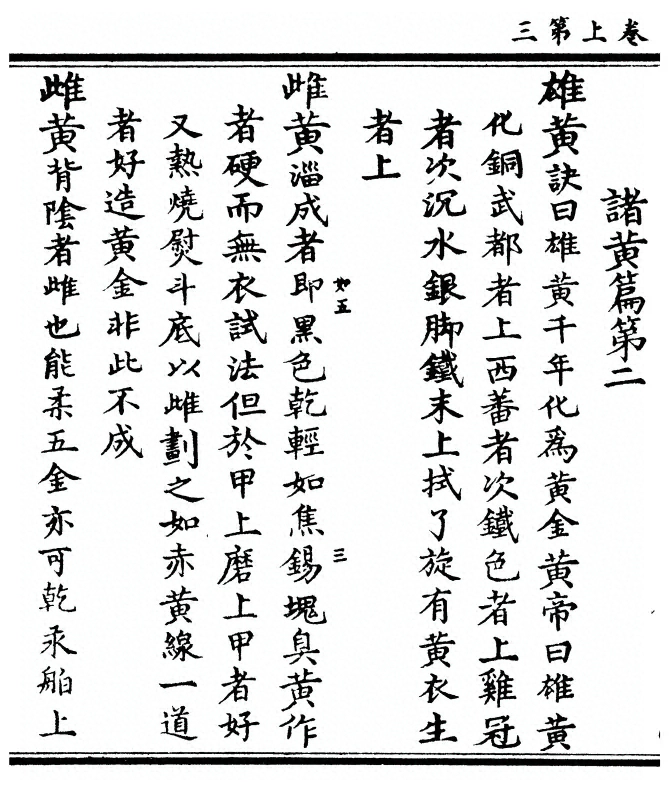 三第上卷
諸黃篇第二
雄黃訣曰雄黃千年化爲黃金黃帝曰雄黃
化銅武都者上西蕃者次鐵色者上雞冠
者次沉水銀脚鐵末上拭了旋有黃衣生
者上
如五 三
雌黃淄成者即黑色乾輕如焦錫塊臭黃作
者硬而無衣試法但於甲上磨上甲者好
又熱燒熨斗底以雌劃之如赤黃線一道
者好造黃金非此不成
雌黃背陰者雌也能柔五金亦可乾汞舶上